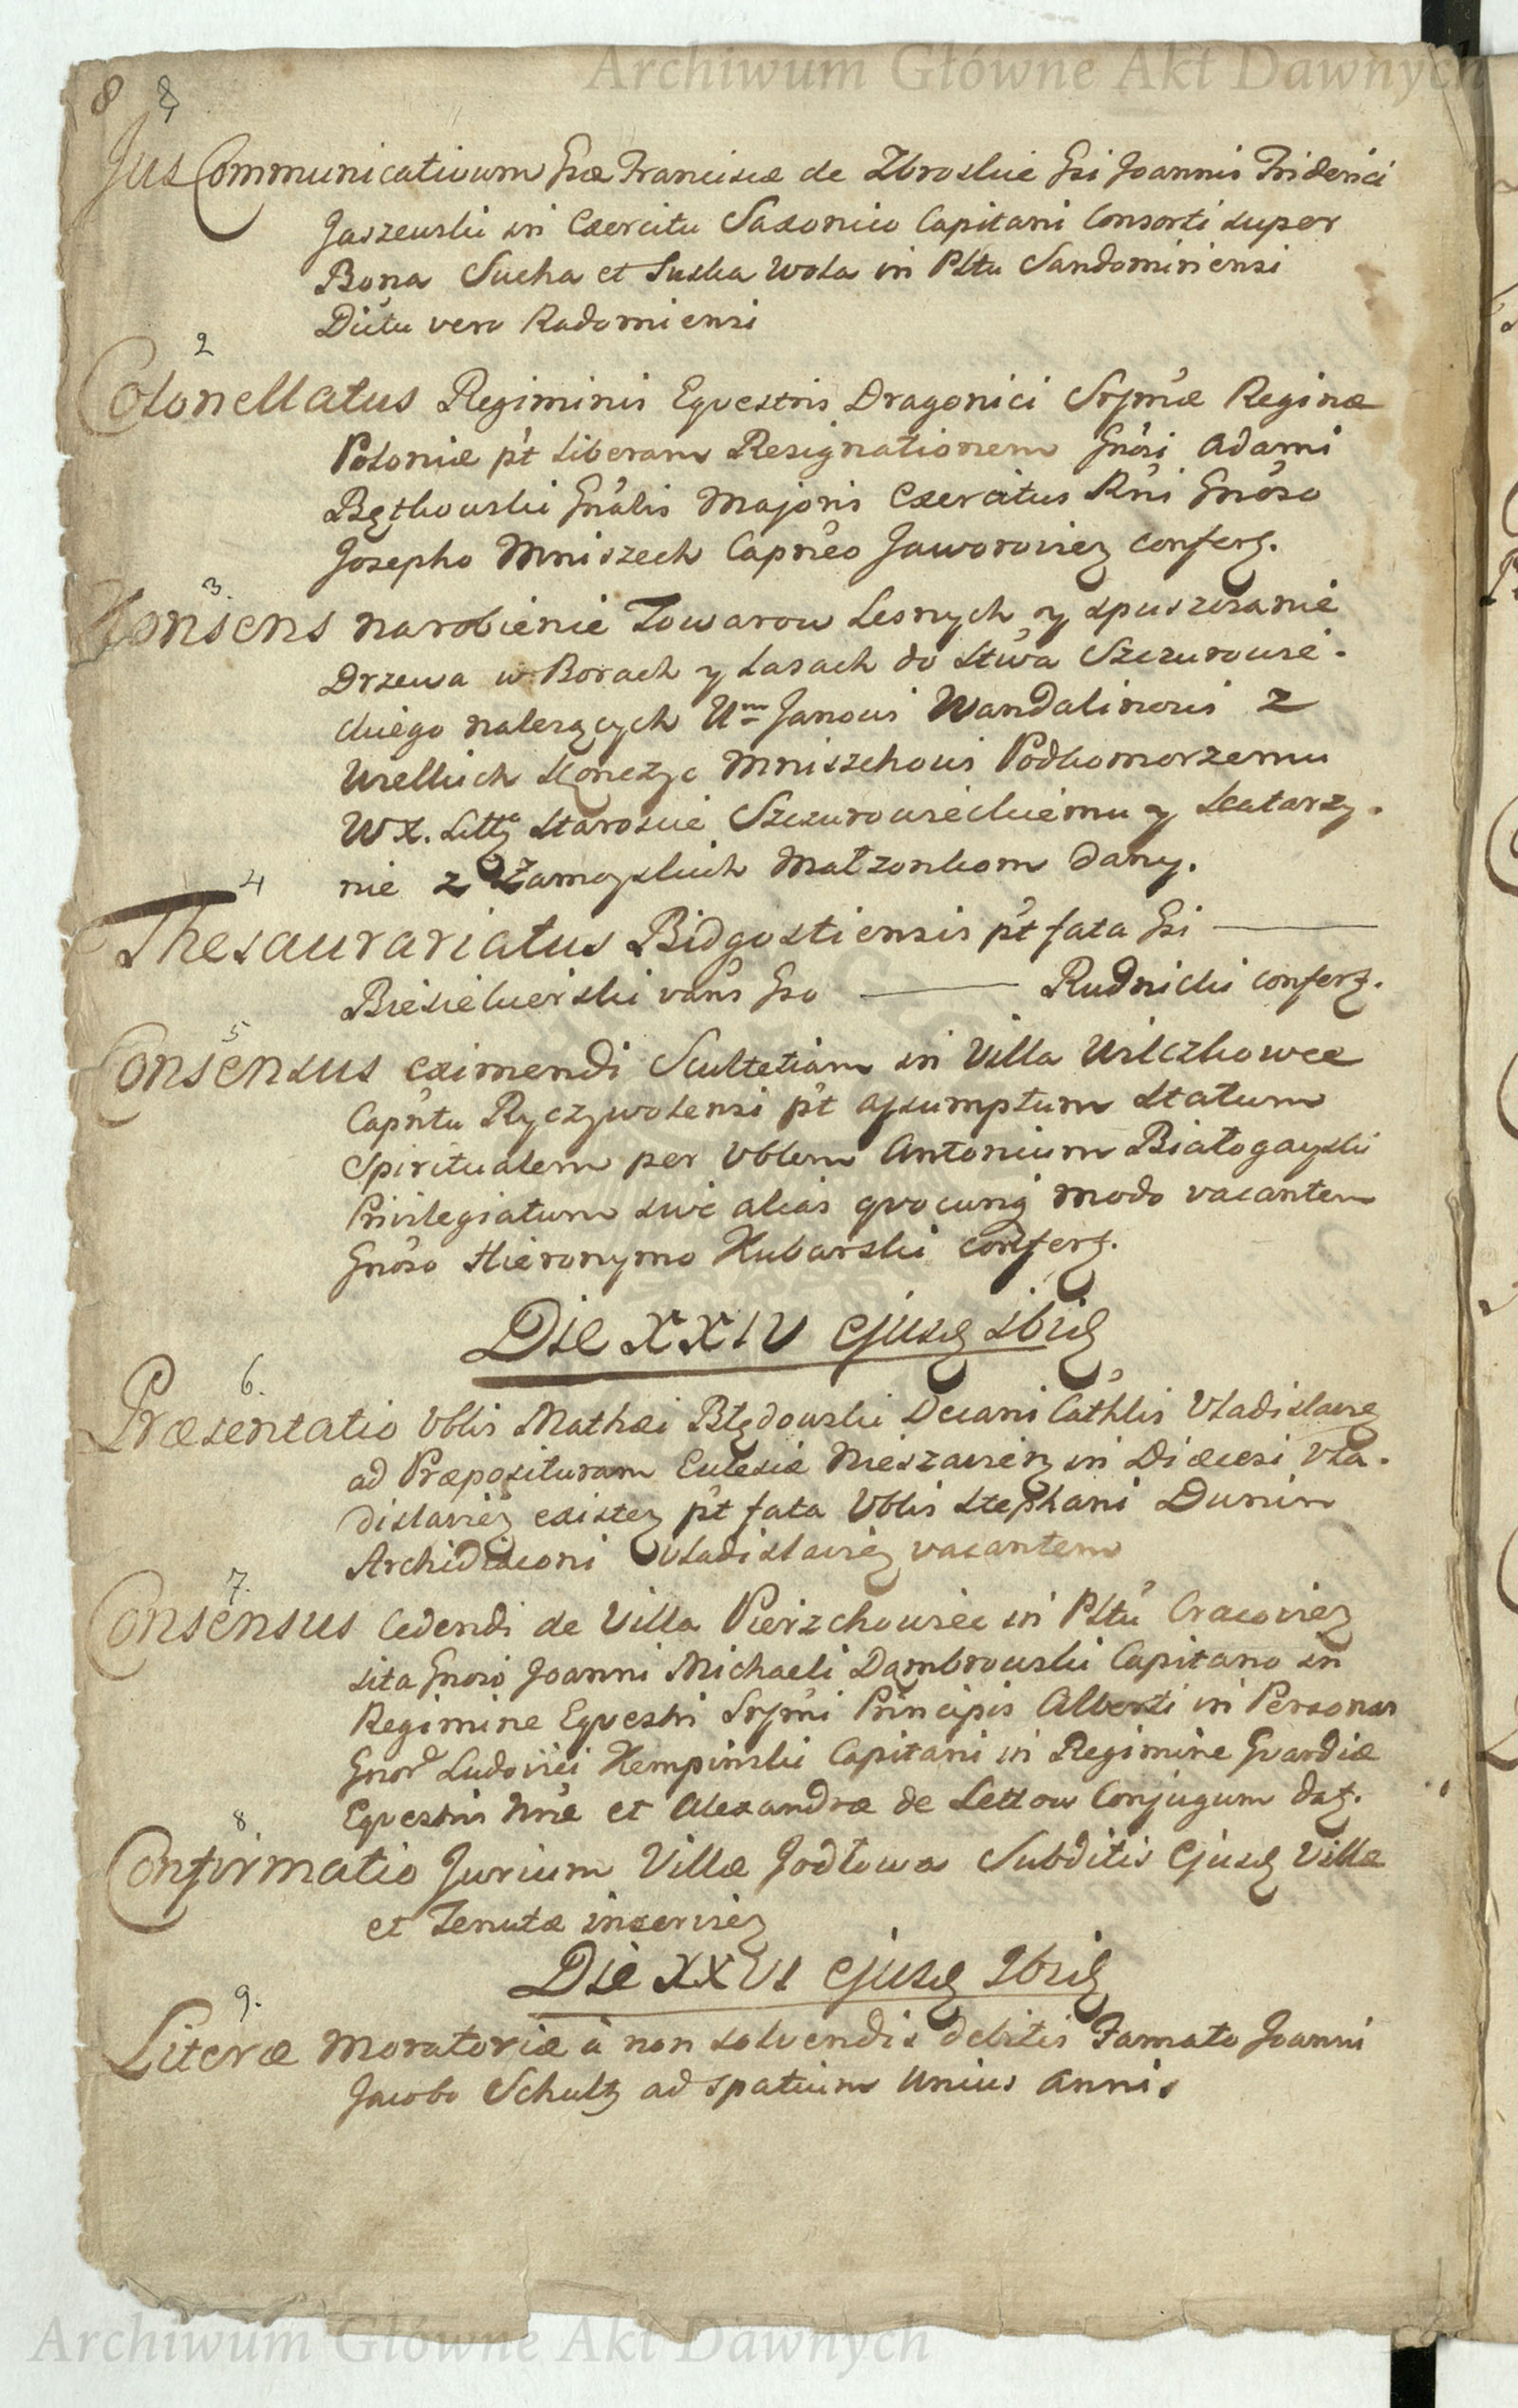 Archiwum Główne Akt Dawnych
8
Jus Communicativum Gsæ Franciscæ de Zbroskie Gsi Joannis Friderici
Jaszewski in Exercitu Saxonico Capitani Consorti super
Bona Sucha et Suska Wola in Plttu Sandomiriensi
Dictu vero Radomiensi
2
Colonellatus Regiminis Eqvestris Dragonici Srjmæ Reginæ
Poloniæ pt liberam Resignationem Gnosi Adami
Bętkowski Gnalis Majoris Exercitus Rni Gnoso
Josepho Mniszech Capneo Jaworoviez conferz.
3.
Konsens narobienie Towarow Lesnych y spuszczanie
Drzewa w Borach y Lasach do Stwa Szczurowie-
ckiego nalezących Um Janowi Wandalinowi z
Wielkich Konczyc Mniszchowi Podkomorzemu
WX. Litt Staroscie Szczurowieckiemu y Katarzy-
nie z Zamoyskich Małzonkom dany.
4
Thesaurariatus Bidgostiensis pt fata Gsi
Biesiekierski vans Gso Rudnicki conferz.
5
Consensus eximendi Scultetiam in Villa Wilczkowce
Capntu Ryczywolensi pt assumptum statum
Spiritualem per Vblem Antonium Białogayski
Privilegiatum sive alias qvocunq modo vacantem
Gnoso Hieronymo Kubarski conferz.
Die XXIV ejusd 9brid
6.
Præsentatio Vblis Mathæi Błędowski Decani Cathlis Vladislavie
ad Præposituram Ecclesiæ Nieszavien in Diæcesi Vla-
dislavien existen pt fata Vblis Stephani Dunin
Archidiaconi Vladislavien vacantem
7.
Consensus cedendi de Villa Pierzchowiec in Plttu Cracovien
sita Gnoso Joanni Michaeli Dąmbrowski Capitano in
Regimine Eqvestri Srjmi Principis Alberti in Personas
Gnor Ludovici Kempinski Capitani in Regimine Gvardiæ
Eqvestris Nræ et Alexandræ de Lettow Conjugum datz.
8
Confirmatio Jurium Villæ Jodłowa Subditis Ejusd Villæ
et Tenutæ inservien
Die XXVI ejusd 9brid
9.
Literæ Moratoriæ à non solvendis debitis Famato Joanni
Jacobo Schultz ad spatium Unius Annis
Archiwum Główne Akt Dawnych